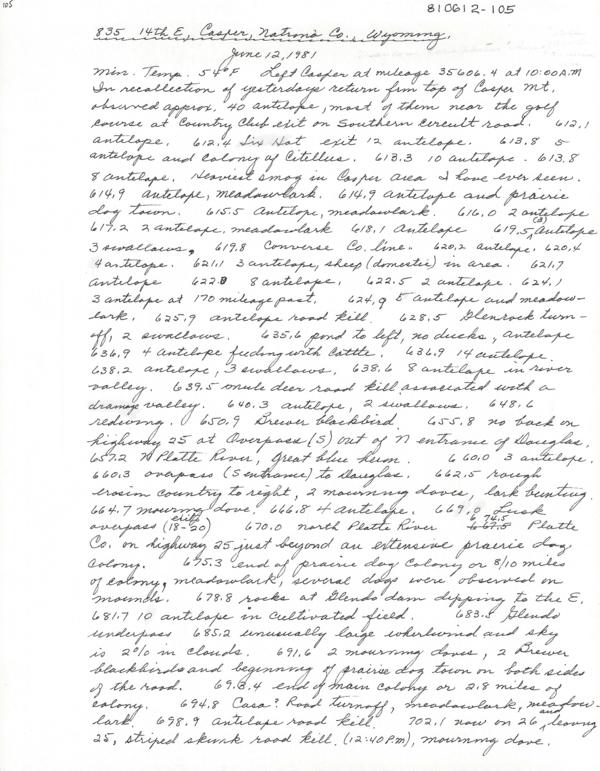 105
810612-105
835 14th E, Casper, Natrona Co., Wyoming,
June 12, 1981
Min. Temp. 54°F Left Casper at mileage 35606.4 at 10:00 A.M
In recollection of yesterdays return frm top of Casper Mt.
observed approx. 40 antelope, most of them near the golf
course at Country Club exit on Southern circult road. 612.1
antelope. 612.4 Six Hat exit 12 antelope. 613.8 5
antelope and colony of Citellus. 613.3 10 antelope. 613.8
8 antelope. Heaviest smog in Casper area I have ever seen.
614.9 antelope, meadowlark. 614.9 antelope and prairie
dog town. 615.5 Antelope, meadowlark. 616.0 2 antelope
617.2 2 antelope, meadowlark 618.1 Antelope 619.5, (2) Antelope
3 swallows, 619.8 Converse Co. line. 620.2 antelope. 620.4
4 antelope. 621.1 3 antelope, sheep (domestic) in area. 621.7
antelope 622.0 8 antelope, 622.5 2 antelope. 624.1
3 antelope at 170 mileage post. 624.9 5 antelope and meadow-
lark. 625.9 antelope road kill. 628.5 Glenrock turn-
off, 2 swallows. 635.6 pond to left, no ducks, antelope
636.9 4 antelope feeding with Cattle. 636.9 14 antelope.
638.2 antelope, 3 swallows. 638.6 8 antelope in river
valley. 639.5 mule deer road kill associated with a
dramage valley. 640.3 antelope, 2 swallows. 648.6
redwing. 650.9 Brewer blackbird. 655.8 no back on
highway 25 at Overpass (S) out of N entrance of Douglas.
657.2 N Platte River, Great blue heron. 660.0 3 antelope.
660.3 overpass (S entrance) to Douglas. 662.5 rough
erosion country to right, 2 mourning doves, lark bunting.
664.7 mourning dove. 666.8 4 Antelope. 669.0 Lusk
overpass (exits 18-20) 670.0 north Platte River 667.5 674.5 Platte
Co. on highway 25 just beyond an extensive prairie dog
colony. 675.3 end of prairie dog Colony or 8/10 miles
of colony, meadowlark, several dogs were observed on
mounds. 678.8 rocks at Glendo dam dipping to the E.
681.7 10 antelope in cultivated field. 683.5 Glendo
underpass 685.2 unusually large wherlwind and sky
is 2% in clouds. 691.6 2 mourning doves, 2 Brewer
blackbirds and beginning of prairie dog town on both sides
of the road. 693.4 end of main colony or 2.8 miles of
colony. 694.8 Casa? Road turnoff, meadowlark, meadow-
lark. 698.9 Antelope road kill. 702.1 now on 26 and leaving
25, striped skunk road kill. (12:40 P.M), mourning dove.